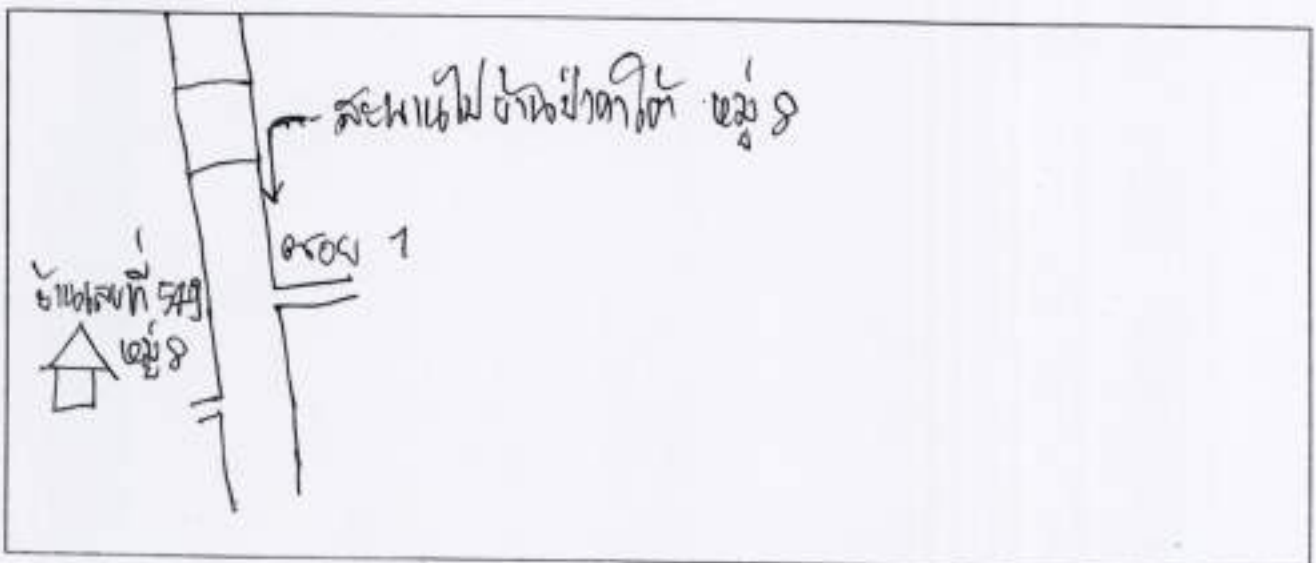 สะพานไปบ้านป่าคาใต้ หมู่ 8
ซอย 1
บ้านเลขที่ 549
หมู่ 8